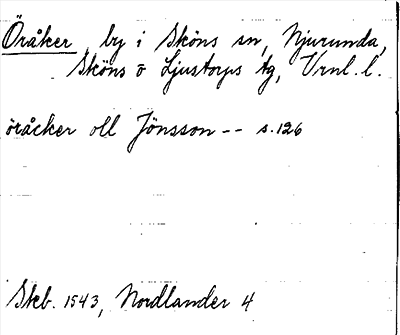 Öråker by i Sköns sn, Njurunda,
Sköns o Ljustorps tg, Vrnl. l.
öråcker oll Jönsson -- s. 126
Skb. 1543, Nordlander 4